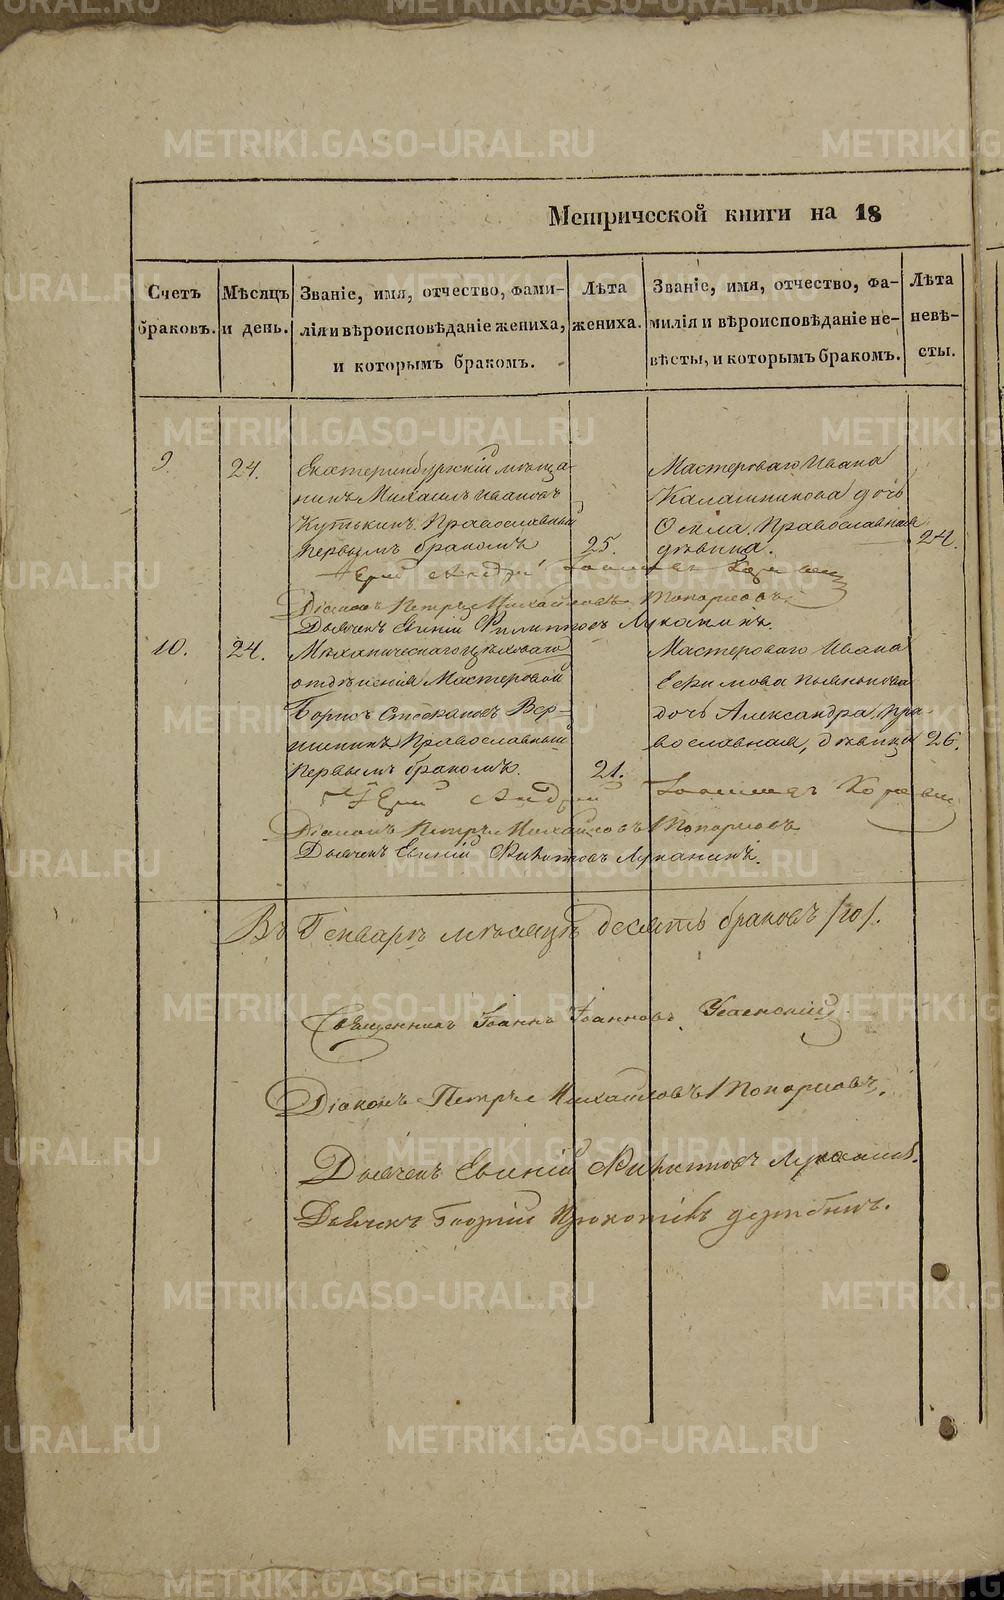 Метрической книги на 18
Счетъ браковъ.
Мѣсяцъ и день.
Званіе, имя, отчество, фами-
лія и вѣроисповѣданіе жениха,
и которымъ бракомъ.
Лѣта жениха.
Званіе, имя, отчество, фа-
милія и вѣроисповѣданіе не-
вѣсты, и которымъ бракомъ.
Лѣта невѣ-
сты.
9.
24.
Екатеринбургскій мѣща-
нинъ Михаилъ Ивановъ
Кутькинъ Православный
первымъ бракомъ
25.
Мастероваго Ивана
Калашникова дочь
Православная
дѣвица.
24.
Іерей Андрей
Діаконъ Петръ Михайловъ Топорковъ.
Дьячекъ Евгеній Филиповъ Луканинъ.
10.
24.
Механическаго цѣховаго
отдѣленія Мастеровой
Борисъ Стефановъ Вер-
шининъ Православный
первымъ бракомъ.
21.
Мастероваго Ивана
Ефимова Пьянкова
дочь Александра, пра-
вославная, дѣвица
26.
Іерей Андрей
Діаконъ Петръ Михайловъ Топорковъ
Дьячекъ Евгеній Филиповъ Луканинъ.
Въ Генварѣ мѣсяцѣ десять браковъ /10/.
Священникъ Іоаннъ Іоанновъ Успенскій.
Діаконъ Петръ Михайловъ Топорковъ.
Дьячекъ Евгеній Филиповъ Луканинъ.
Дьячекъ Георгій
METRIKI.GASO-URAL.RU